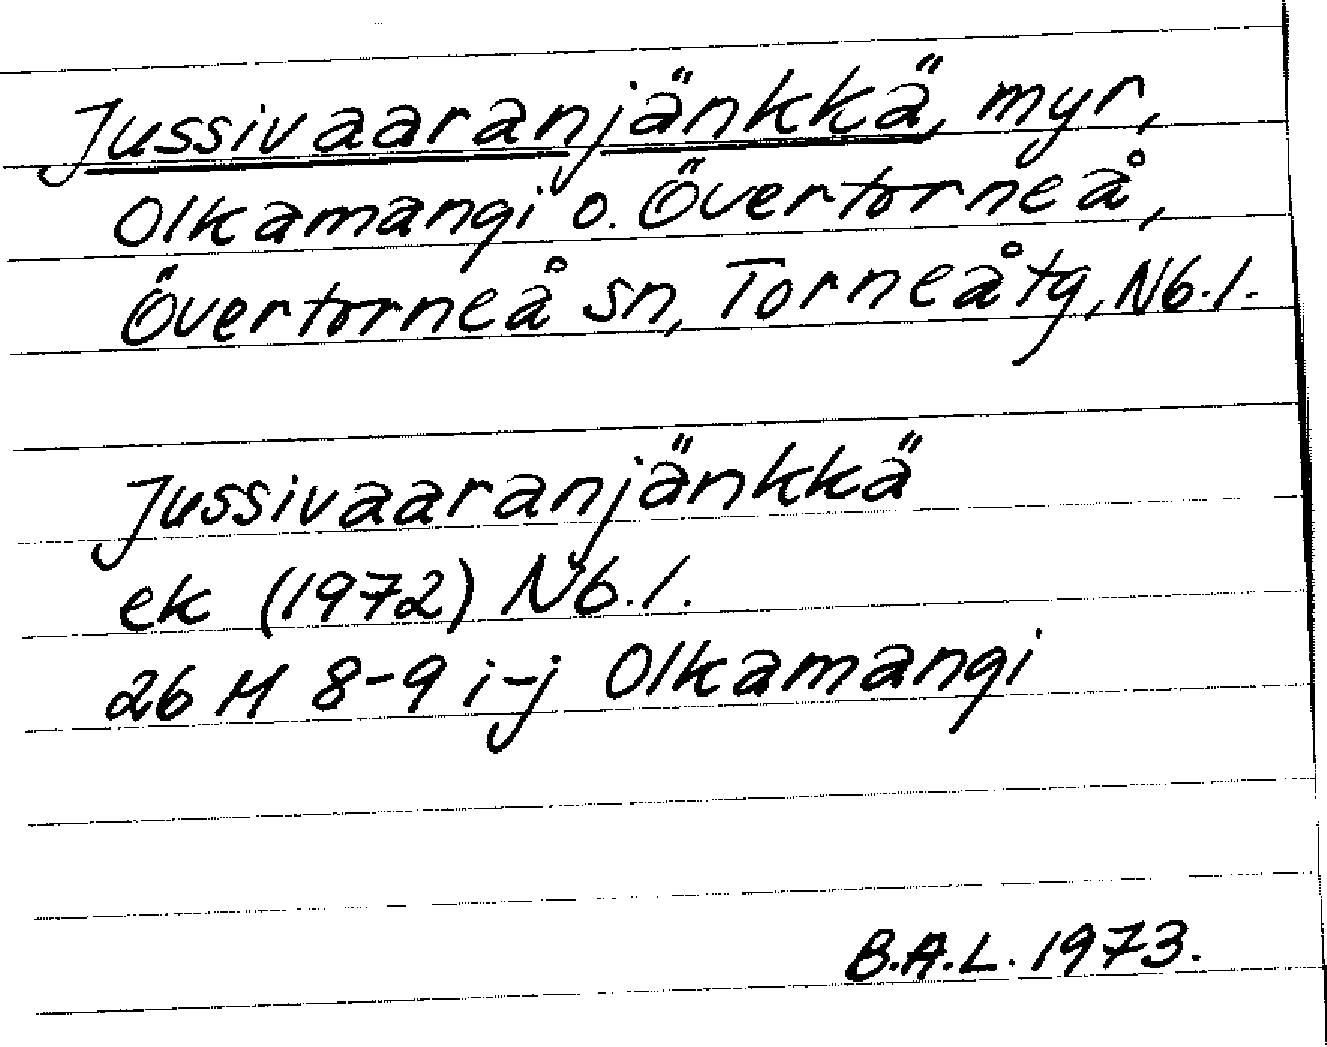 Jussivaaranjänkkä, myr,
Olkamangi o. Övertorneå,
Övertorneå sn, Torneå tg, Nb.l.
Jussivaaranjänkkä
ek (1972) Nb.l.
26 M 8-9 i-j Olkamangi
B.A.L. 1973.